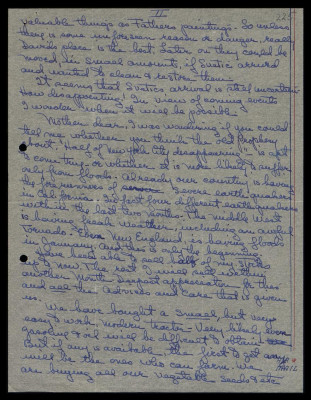 valuable things as Father's paintings. So unless
there is some unforeseen reason or danger, really
David's place is the best. Later on they could be
moved, in small amounts, if Svetics arrived
and wanted to clean & restore them.
It seems that Svetics arrival is still uncertain.
How disappointing! In view of coming events
I wonder when it will be possible.
Mother dear, I was wondering if you could
tell me whether you think the old prophecy
about "Half of New York City disappearing" is apt
to come true - or whether it is more likely to suffer
only from floods. Already our country is having
the forerunners of severe earthquakes
in California. Six four different earthquakes
within the last two months. The middle West
is having freak weather, including an awful
tornado. Even New England is having floods
in January, and this is only the beginning.
I have been able to sell half of my stocks
up to now. The rest I will sell within
another month. Deepest appreciation for this
and all the Advices and Care that is given
us.
We have bought a small, but very
easy to work, modern tractor. Very likely,
gasoline & oil will be difficult to obtain
But if any is available, the first to get
will be the ones who can farm. We
are buying all our vegetable seeds & etc